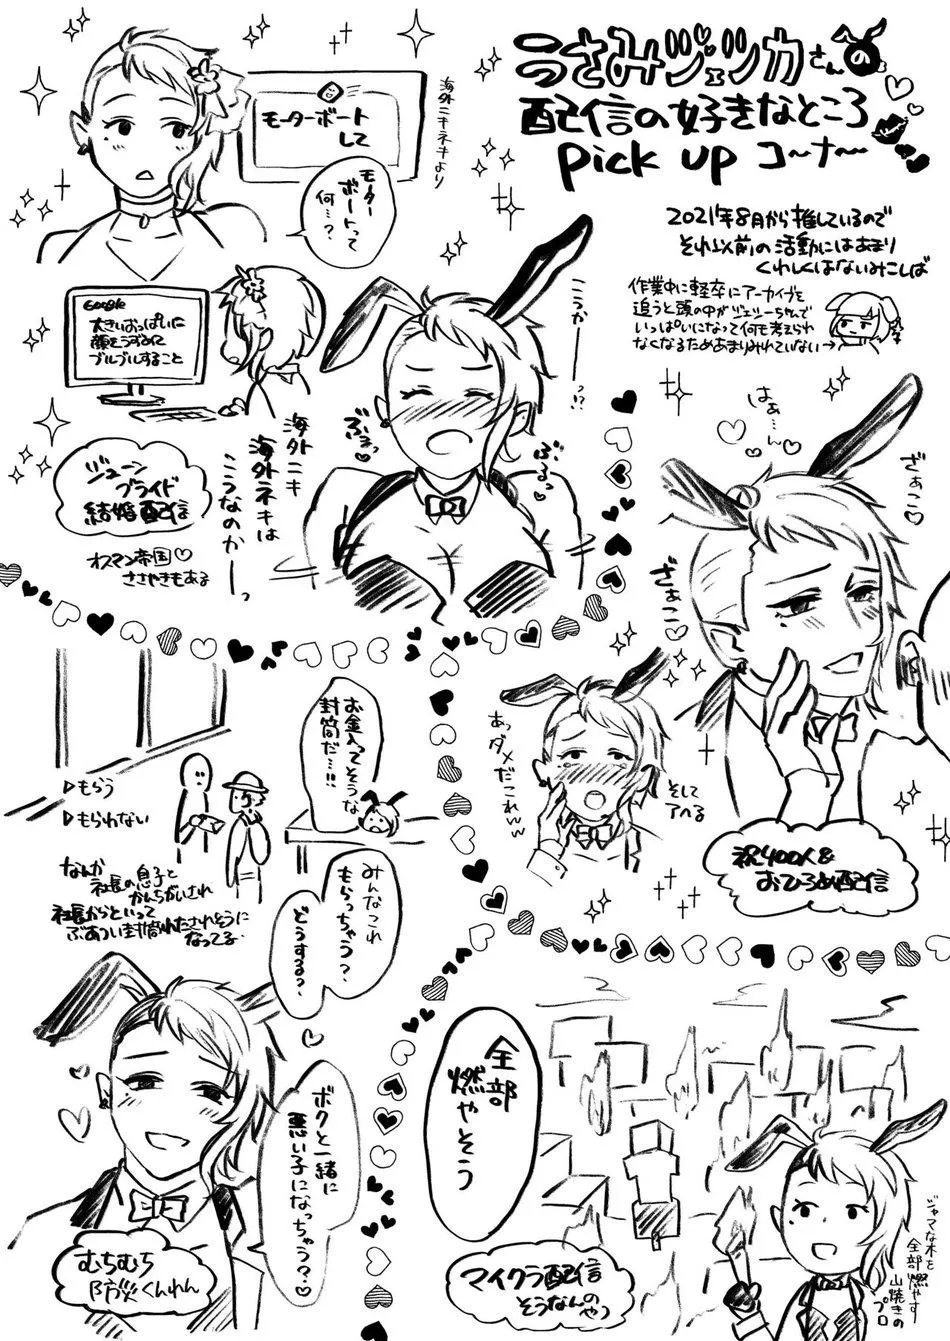 うさみジェッカさんの
配信の好きなところ
pick up コ〜ナ〜
2021年8月から推しているので
それ以前の活動にはあまり
くわしくはないみこしば
作業中に軽卒にアーカイブを
追うと頭の中がジェリーちゃんで
いっぱいになって何も考えられ
なくなるためあまりみれていない→
海外ニキネキより
モーターボート
して
モーター
ボートって
何…?
Google
大きいおっぱいに
顔をうずめて
ブルブルすること
こうかーーっ!?
ぶるっ
海外ニキ
海外ネキは
こうなのかーっ
ジューン
ブライド
結婚配信
オスマン帝国♡
ささやきもある
はぁ…ん♡
ざぁこ♡
ざぁこ♡
あっダメだこれww
そして
アヘる
祝400人&
おひろめ配信
▷もらう
▷もらわない
お金入ってそうな
封筒だ…!!
なんか
社長の息子と
かんちがいされ
社長からといって
ぶあつい封筒わたされそうに
なってる
みんなこれ
もらっちゃう?
どうする?
ボクと一緒に
悪い子になっちゃう?♡
むちむち
防災くんれん
全部
燃やそう
マイクラ配信
そうなんのやつ
ジャマな木を
全部燃やす
山焼きの
プロ